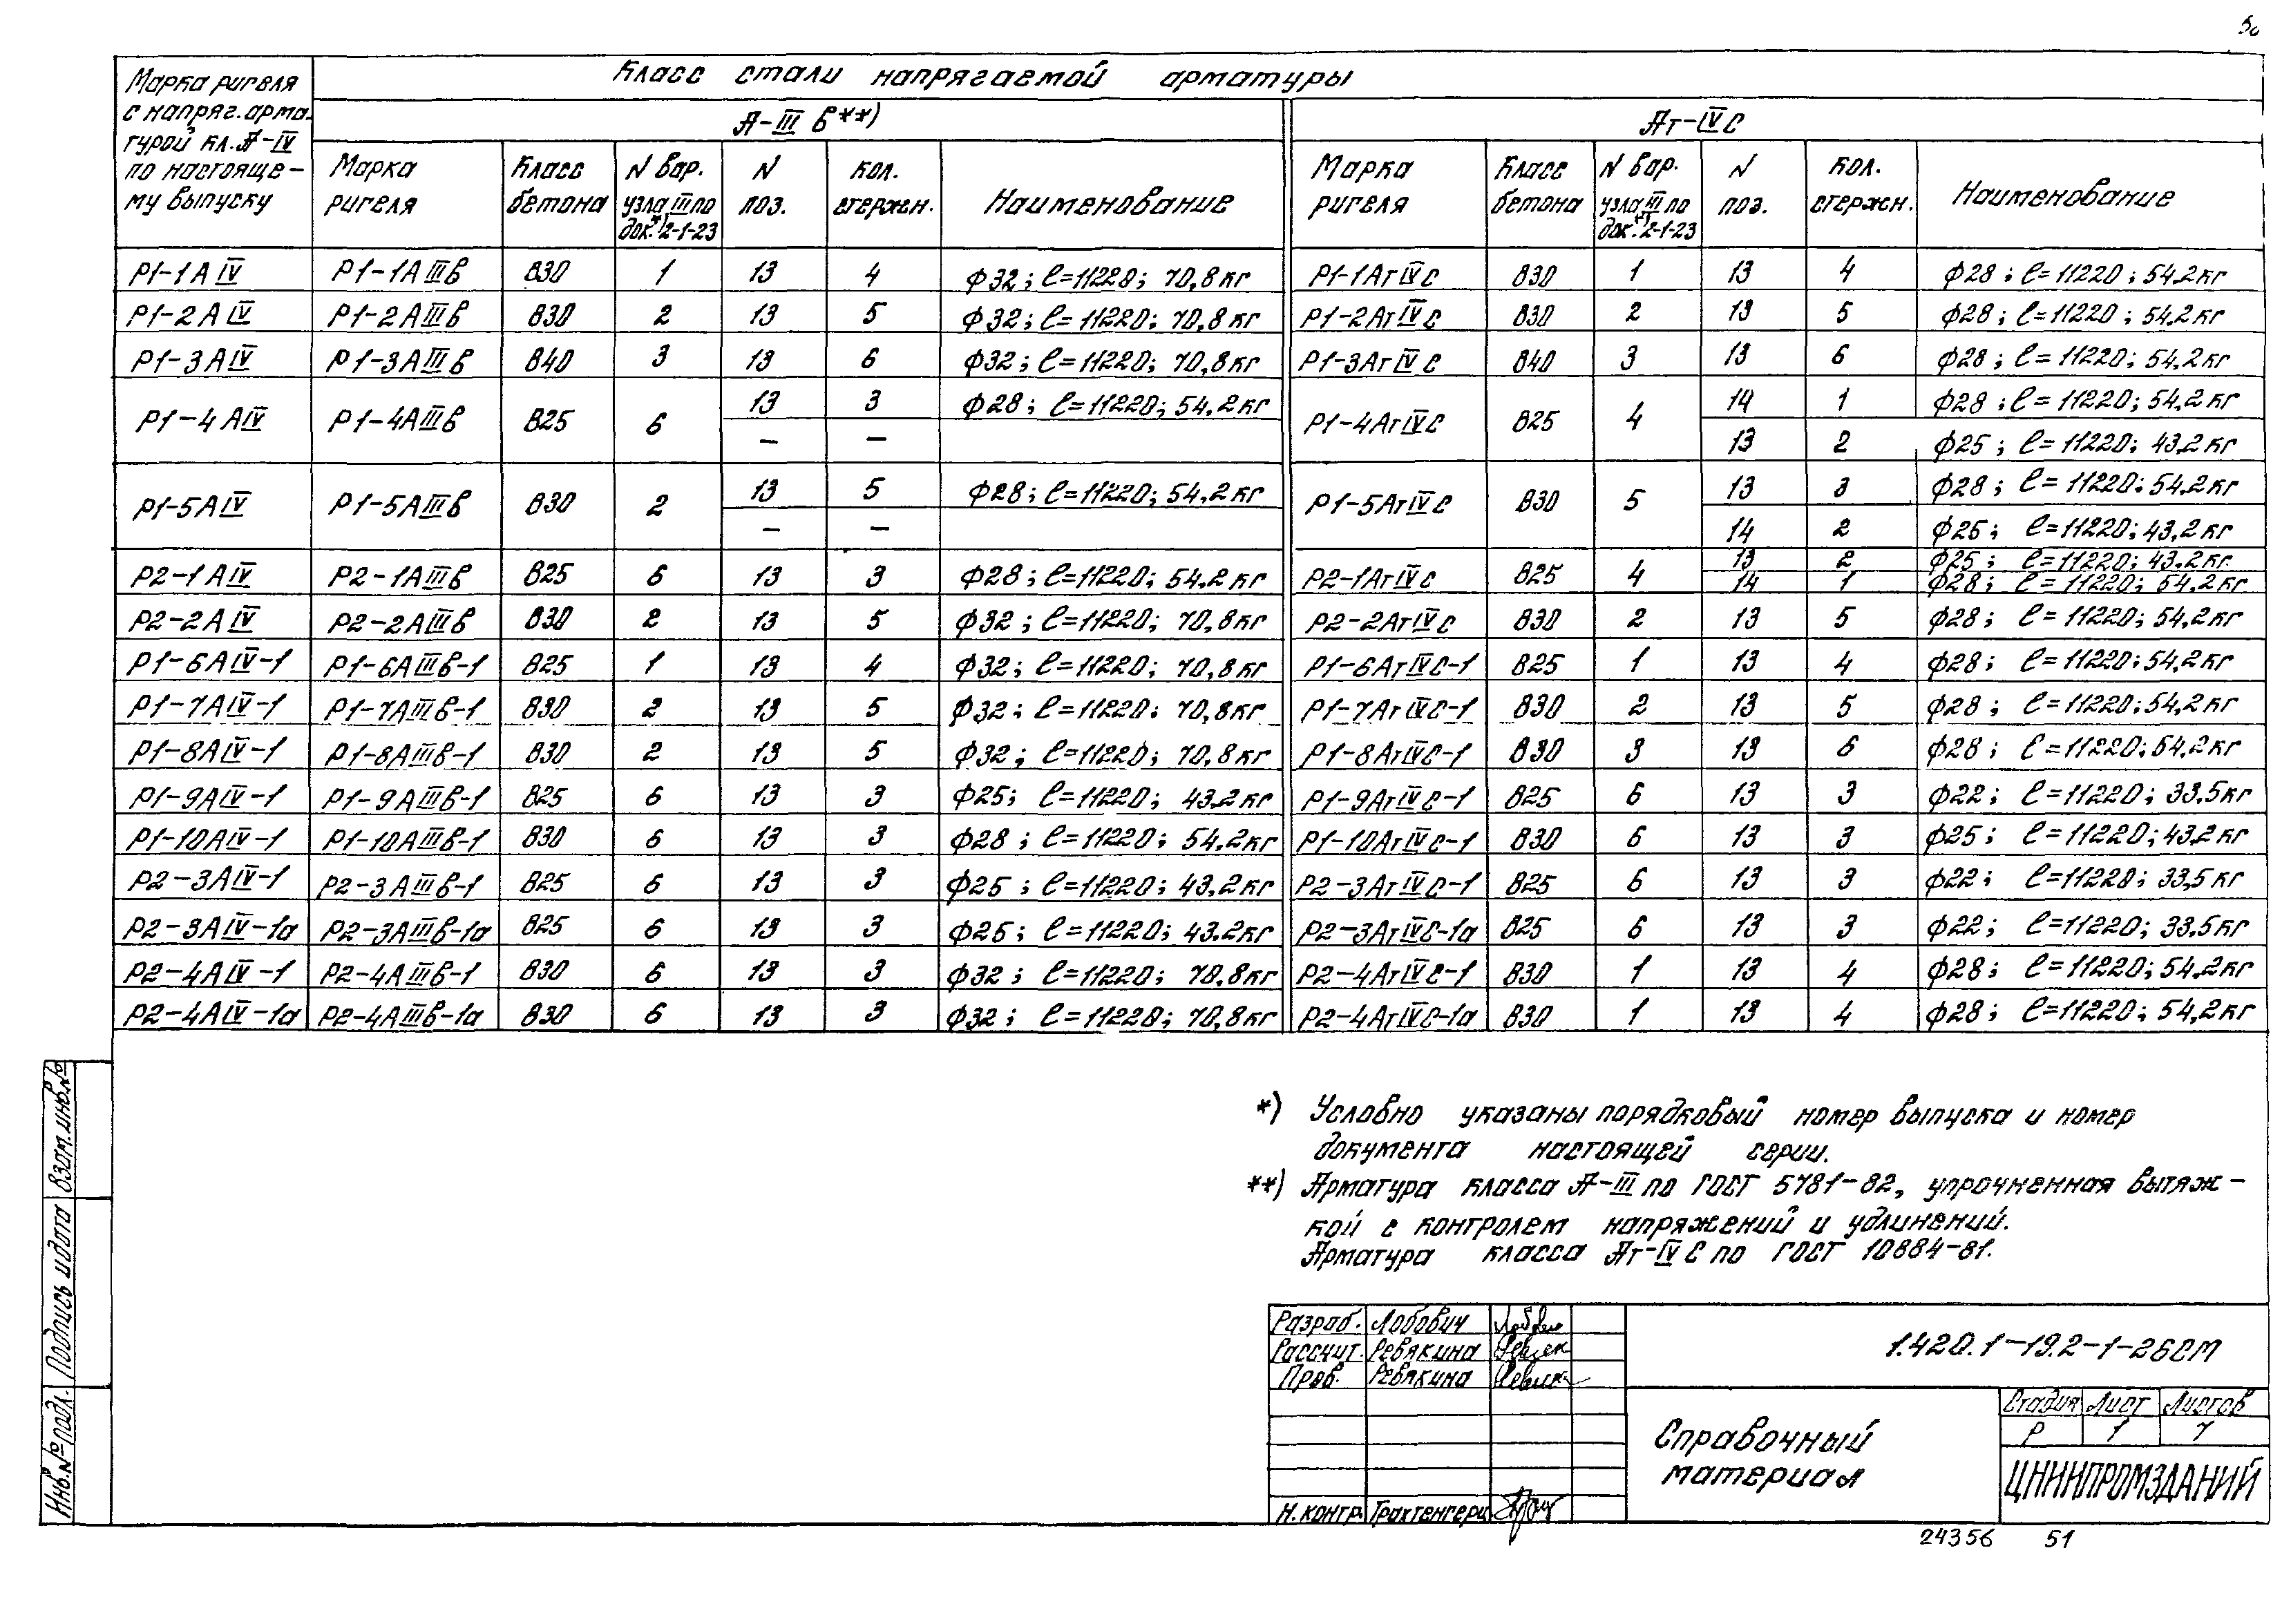 50
Класс стали напрягаемой арматуры
Марка ригеля
с напряг. арма-
турой кл. А-IV
по настояще-
му выпуску
А-III в**)
Ат-IVС
Марка ригеля
Класс бетона
N вар. узла III по док.*) 2-1-23
N поз.
кол. стержн.
Наименование
Марка ригеля
Класс бетона
N вар. узла III по док.*) 2-1-23
N поз.
кол. стержн.
Наименование
Р1-1АIV Р1-1АIIIв В30 1 13 4 ф32; ℓ=11220; 70,8кг Р1-1АтIVС В30 1 13 4 ф28; ℓ=11220; 54,2кг
Р1-2АIV Р1-2АIIIв В30 2 13 5 ф32; ℓ=11220; 70,8кг Р1-2АтIVС В30 2 13 5 ф28; ℓ=11220; 54,2кг
Р1-3АIV Р1-3АIIIв В40 3 13 6 ф32; ℓ=11220; 70,8кг Р1-3АтIVС В40 3 13 6 ф28; ℓ=11220; 54,2кг
Р1-4АIV Р1-4АIIIв В25 6 13 3 ф28; ℓ=11220; 54,2кг Р1-4АтIVС В25 4 14 1 ф28; ℓ=11220; 54,2кг
— — 13 2 ф25; ℓ=11220; 43,2кг
Р1-5АIV Р1-5АIIIв В30 2 13 5 ф28; ℓ=11220; 54,2кг Р1-5АтIVС В30 5 13 3 ф28; ℓ=11220; 54,2кг
— — 14 2 ф25; ℓ=11220; 43,2кг
Р2-1АIV Р2-1АIIIв В25 6 13 3 ф28; ℓ=11220; 54,2кг Р2-1АтIVС В25 4 13 2 ф25; ℓ=11220; 43,2кг
14 1 ф28; ℓ=11220; 54,2кг
Р2-2АIV Р2-2АIIIв В30 2 13 5 ф32; ℓ=11220; 70,8кг Р2-2АтIVС В30 2 13 5 ф28; ℓ=11220; 54,2кг
Р1-6АIV-1 Р1-6АIIIв-1 В25 1 13 4 ф32; ℓ=11220; 70,8кг Р1-6АтIVС-1 В25 1 13 4 ф28; ℓ=11220; 54,2кг
Р1-7АIV-1 Р1-7АIIIв-1 В30 2 13 5 ф32; ℓ=11220; 70,8кг Р1-7АтIVС-1 В30 2 13 5 ф28; ℓ=11220; 54,2кг
Р1-8АIV-1 Р1-8АIIIв-1 В30 2 13 5 ф32; ℓ=11220; 70,8кг Р1-8АтIVС-1 В30 3 13 6 ф28; ℓ=11220; 54,2кг
Р1-9АIV-1 Р1-9АIIIв-1 В25 6 13 3 ф25; ℓ=11220; 43,2кг Р1-9АтIVС-1 В25 6 13 3 ф22; ℓ=11220; 33,5кг
Р1-10АIV-1 Р1-10АIIIв-1 В30 6 13 3 ф28; ℓ=11220; 54,2кг Р1-10АтIVС-1 В30 6 13 3 ф25; ℓ=11220; 43,2кг
Р2-3АIV-1 Р2-3АIIIв-1 В25 6 13 3 ф25; ℓ=11220; 43,2кг Р2-3АтIVС-1 В25 6 13 3 ф22; ℓ=11220; 33,5кг
Р2-3АIV-1а Р2-3АIIIв-1а В25 6 13 3 ф25; ℓ=11220; 43,2кг Р2-3АтIVС-1а В25 6 13 3 ф22; ℓ=11220; 33,5кг
Р2-4АIV-1 Р2-4АIIIв-1 В30 6 13 3 ф32; ℓ=11220; 70,8кг Р2-4АтIVС-1 В30 1 13 4 ф28; ℓ=11220; 54,2кг
Р2-4АIV-1а Р2-4АIIIв-1а В30 6 13 3 ф32; ℓ=11220; 70,8кг Р2-4АтIVС-1а В30 1 13 4 ф28; ℓ=11220; 54,2кг
*) Условно указаны порядковый номер выпуска и номер
документа настоящей серии.
**) Арматура класса А-III по ГОСТ 5781-82, упрочненная вытяж-
кой с контролем напряжений и удлинений.
Арматура класса Ат-IVС по ГОСТ 10884-81.
Инв.№ подл. Подпись и дата Взам.инв.№
Разраб. Лобович
Рассчит. Ревякина
Пров. Ревякина
Н.контр. Трахтенгерц
1.420.1-19.2-1-26СМ
Справочный
материал
Стадия Лист Листов
Р 1 7
ЦНИИПРОМЗДАНИЙ
24356 51